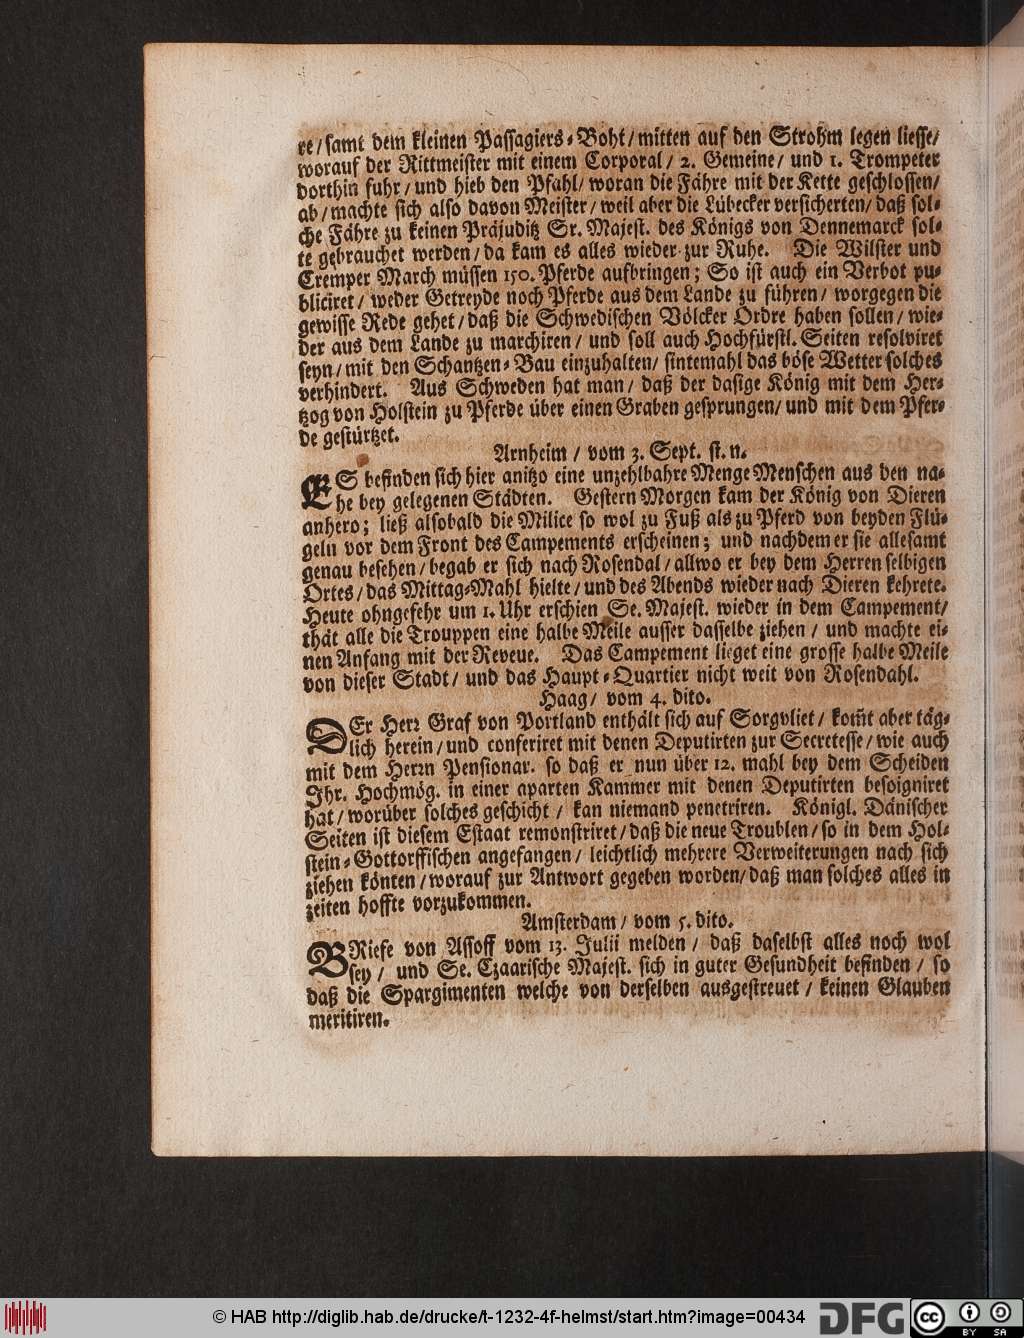 re / samt dem kleinen Passagiers-Boht / mitten auf den Strohm legen liesse /
worauf der Rittmeister mit einem Corporal / 2. Gemeine / und 1. Trompeter
dorthin fuhr / und hieb den Pfahl / woran die Fähre mit der Kette geschlossen /
ab / machte sich also davon Meister / weil aber die Lübecker versicherten / daß sol-
che Fähre zu keinen Präjuditz Sr. Majest. des Königs von Dennemarck sol-
te gebrauchet werden / da kam es alles wieder zur Ruhe. Die Wilster und
Cremper March müssen 150. Pferde aufbringen; So ist auch ein Verbot pu-
bliciret / weder Getreyde noch Pferde aus dem Lande zu führen / worgegen die
gewisse Rede gehet / daß die Schwedischen Völcker Ordre haben sollen / wie-
der aus dem Lande zu marchiren / und soll auch Hochfürstl. Seiten resolviret
seyn / mit den Schantzen-Bau einzuhalten / sintemahl das böse Wetter solches
verhindert. Aus Schweden hat man / daß der dasige König mit dem Her-
tzog von Holstein zu Pferde über einen Graben gesprungen / und mit dem Pfer-
de gestürtzet.
Arnheim / vom 3. Sept. st. n.
ES befinden sich hier anitzo eine unzehlbahre Menge Menschen aus den na-
he bey gelegenen Städten. Gestern Morgen kam der König von Dieren
anhero; ließ alsobald die Milice so wol zu Fuß als zu Pferd von beyden Flü-
geln vor dem Front des Campements erscheinen; und nachdem er sie allesamt
genau besehen / begab er sich nach Rosendal / allwo er bey dem Herren selbigen
Ortes / das Mittag-Mahl hielte / und des Abends wieder nach Dieren kehrete.
Heute ohngefehr um 1. Uhr erschien Se. Majest. wieder in dem Campement /
thät alle die Trouppen eine halbe Meile ausser dasselbe ziehen / und machte ei-
nen Anfang mit der Reveue. Das Campement lieget eine grosse halbe Meile
von dieser Stadt / und das Haupt-Quartier nicht weit von Rosendahl.
Haag / vom 4. dito.
DEr Herr Graf von Portland enthält sich auf Sorgvliet / kom̃t aber täg-
lich herein / und conferiret mit denen Deputirten zur Secretesse / wie auch
mit dem Herrn Pensionar. so daß er nun über 12. mahl bey dem Scheiden
Ihr. Hochmög. in einer aparten Kammer mit denen Deputirten besoigniret
hat / worüber solches geschicht / kan niemand penetriren. Königl. Dänischer
Seiten ist diesem Estaat remonstriret / daß die neue Troublen / so in dem Hol-
stein-Gottorffischen angefangen / leichtlich mehrere Verweiterungen nach sich
ziehen könten / worauf zur Antwort gegeben worden / daß man solches alles in
zeiten hoffte vorzukommen.
Amsterdam / vom 5. dito.
BRiefe von Assoff vom 13. Julii melden / daß daselbst alles noch wol
sey / und Se. Czaarische Majest. sich in guter Gesundheit befinden / so
daß die Spargimenten welche von derselben ausgestreuet / keinen Glauben
meritiren.
© HAB http://diglib.hab.de/drucke/t-1232-4f-helmst/start.htm?image=00434
DFG
cc
BY SA